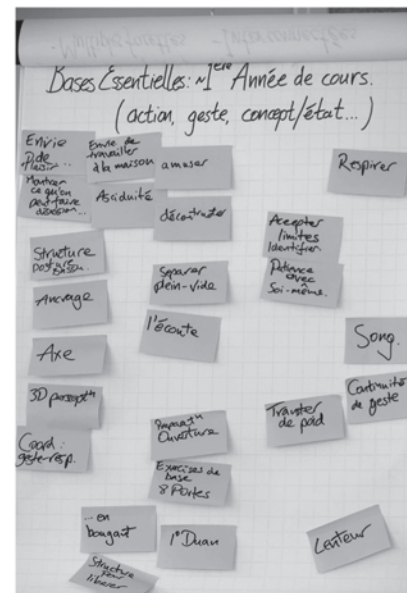 - Multiples facettes - Interconnectées
Bases Essentielles: ~1ère Année de cours.
(action, geste, concept/état...)
Envie
de
plaisir...
Envie de
travailler
à la maison
amuser
Respirer
Montrer
ce qu'on
peut faire
Asciduité
décontracter
Accepter
limites
Identifier.
Structure
posture
Séparer
plein-vide
Patience
avec
Soi-même.
Ancrage
l'écoute
Song.
Axe
Continuité
de geste
3D percept°
Transfer
de poid
Coord:
geste-resp.
Ouverture
Exercices de
base
8 Portes
... en
bougeant
1° Duan
Lenteur
Structure
pour
libérer